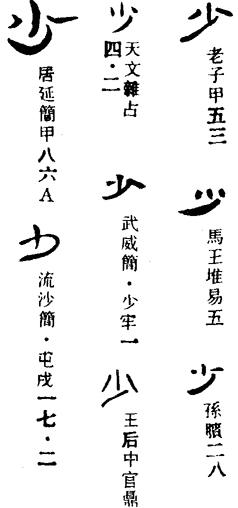 少
老子甲五三
少
馬王堆易五
少
孫臏二八
少
天文雜占
四·二
少
武威簡·少牢一
少
王后中官鼎
少
居延簡甲八六A
少
流沙簡·屯戍一七·二